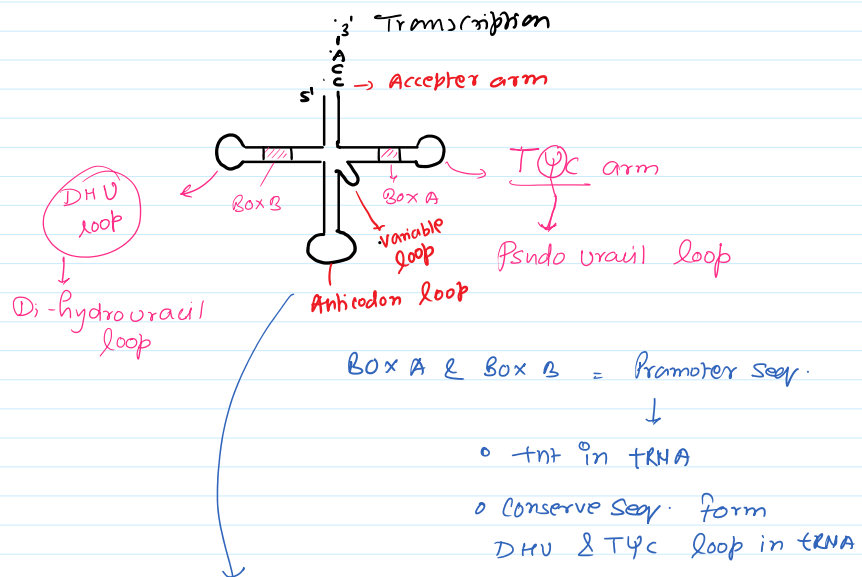 Transcription
3'
1
A
C
C → Accepter arm
5'
DHU
loop
BOX B
BOX A
TΨC arm
variable
loop
Psudo uracil loop
Anticodon loop
Di-hydrouracil
loop
BOX A & BOX B = Pramoter seq.
tnt in tRNA
Conserve seq. form
DHU & TΨC loop in tRNA